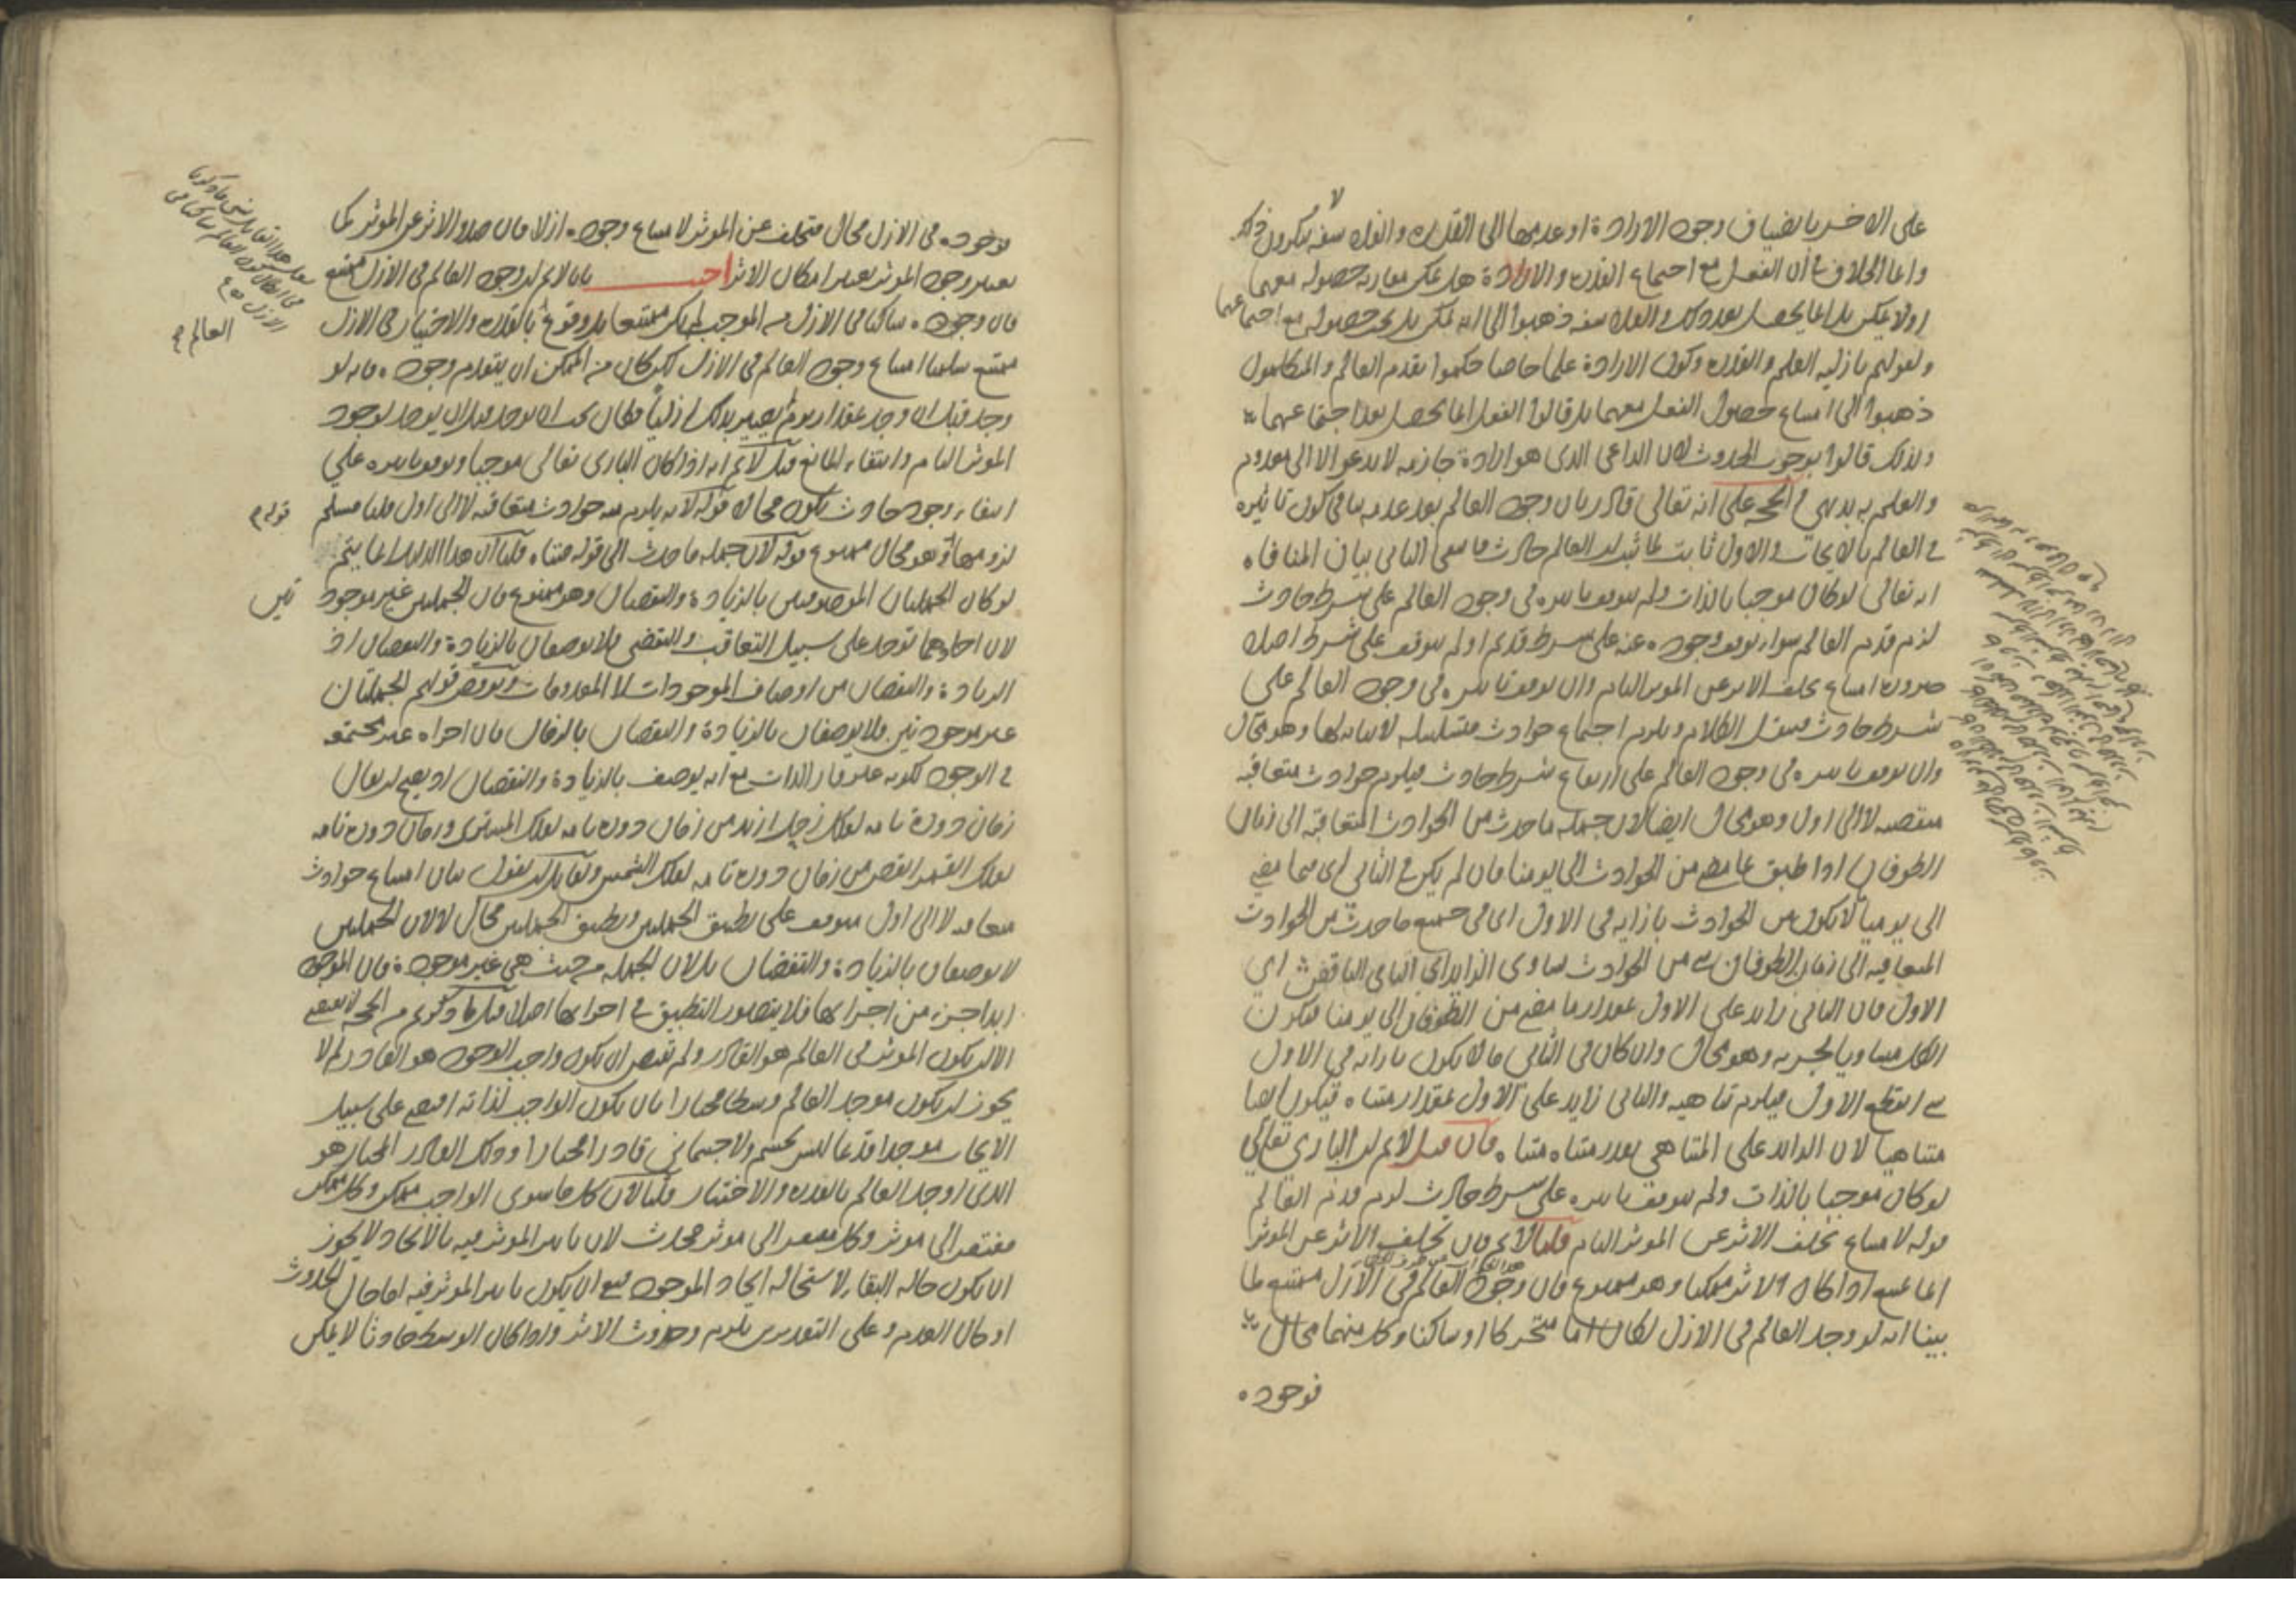 على الاخر بانضياف وجود الارادة او عدمها الى القدرة والفلاسفة لا ينكرون ذلك
وانما الخلاف في ان الفعل مع اجتماع القدرة والارادة هل يمكن مقارنة حصوله معهما
او لا يمكن بل انما يحصل بعد ذلك والفلاسفة ذهبوا الى انه يمكن بل يجب حصوله مع اجتماعهما
ولقولهم بازلية العلم والقدرة وكون الارادة علما خاصا حكموا بقدم العالم والمتكلمون
ذهبوا الى امتناع حصول الفعل معهما بل قالوا الفعل انما يحصل بعد اجتماعهما
ولذلك قالوا بوجوب الحدوث لان الداعي الذي هو ارادة جازمة لا يدعو الا الى معدوم
والعلم به بديهي والحجة على انه تعالى قادر بان وجود العالم بعد عدمه ينافي كون تاثيره
في العالم بالايجاب والاول ثابت لما ثبت ان العالم حادث فانتفى الثاني بيان المنافاة
انه تعالى لو كان موجبا بالذات ولم يتوقف تاثيره في وجود العالم على شرط حادث
لزم قدم العالم سواء توقف وجوده عنه على شرط قديم او لم يتوقف على شرط اصلا
ضرورة امتناع تخلف الاثر عن الموثر التام وان توقف تاثيره في وجود العالم على
شرط حادث ننقل الكلام ويلزم اجتماع حوادث متسلسلة لا نهاية لها وهو محال
وان توقف تاثيره في وجود العالم على ارتفاع شرط حادث فيلزم حوادث متعاقبة
منقضية لا الى اول وهو محال ايضا لان جملة ما حدث من الحوادث المتعاقبة الى زمان
الطوفان اذا طبق بما مضى من الحوادث الى يومنا فان لم يكن في الثاني اي فيما مضى
الى يومنا ما لا يكون من الحوادث بازايه في الاول اي في جميع ما حدث من الحوادث
المتعاقبة الى زمان الطوفان من الحوادث ساوى الزايد اي الثاني الناقص اي
الاول فان الثاني زايد على الاول بمقدار ما مضى من الطوفان الى يومنا فيكون
الكل مساويا لجزيه وهو محال وان كان في الثاني ما لا يكون بازايه في الاول
انقطع الاول فيلزم تناهيه والثاني زايد على الاول بمقدار متناه فيكون ايضا
متناهيا لان الزايد على المتناهي بعدد متناه متناه فان قيل لا نم ان الباري تعالى
لو كان موجبا بالذات ولم يتوقف تاثيره على شرط حادث لزم قدم العالم
قوله لامتناع تخلف الاثر عن الموثر التام قلنا لا نم فان تخلف الاثر عن الموثر
انما يمتنع اذا كان الاثر ممكنا وهو ممنوع فان وجود العالم في الازل ممتنع لما
بينا انه لو وجد العالم في الازل لكان اما متحركا او ساكنا وكل منهما محال
فوجوده
فوجوده في الازل محال فتخلف عن الموثر لامتناع وجوده ازلا فان صدور الاثر عن الموثر كما
يعتبر وجود الموثر يعتبر امكان الاثر اجيب بان لا نم ان وجود العالم في الازل ممتنع
فان وجوده ساكنا في الازل من الموجب لم يكن ممتنعا بل وقوعه بالقدرة والاختيار في الازل
ممتنع سلمنا امتناع وجود العالم في الازل لكن كان من الممكن ان يتقدم وجوده فانه لو
وجد قبل ان وجد بمقدار يوم لم يصير بذلك ازليا فكان يجب ان يوجد قبل ان يوجد لوجود
الموثر التام وانتفاء المانع قيل لا نم انه اذا كان الباري تعالى موجبا وتوقف تاثيره على
انتفاء وجود حادث يكون محالا قوله لانه يلزم منه حوادث متعاقبة لا الى اول قلنا مسلم
لزومها وهو محال ممنوع قوله لان جملة ما حدث الى قوله متناه قلنا ان هذا الدليل انما يتم
لو كان الجملتان الموصوفتين بالزيادة والنقصان وهو ممنوع فان الجملتين غير موجود
تين
لان احادهما توجد على سبيل التعاقب والتقضي فلا توصفان بالزيادة والنقصان اذ
الزيادة والنقصان من اوصاف الموجودات لا المعدومات ونوقض قولهم الجملتان
غير موجودتين فلا يوصفان بالزيادة والنقصان بالزمان بان اجزاءه غير مجتمعة
في الوجود لكونه غير قار الذات مع انه يوصف بالزيادة والنقصان اذ يصح ان يقال
زمان دورة تامة لفلك زحل ازيد من زمان دورة تامة لفلك المشتري وزمان دورة تامة
لفلك القمر انقص من زمان دورة تامة لفلك الشمس ولقايل ان يقول بيان امتناع حوادث
متعاقبة لا الى اول متوقف على تطبيق الجملتين وتطبيق الجملتين محال لا لان الجملتين
لا توصفان بالزيادة والنقصان بل لان الجملة من حيث هي غير موجودة فان الموجود
ابدا جزء من اجزائها فلا يتصور التطبيق في اجزائها اصلا قيل ما ذكرتم من الحجة لا تقتضي
الا ان يكون الموثر في العالم هو القادر ولم تقتض ان يكون واجب الوجود هو القادر لم لا
يجوز ان يكون موجد العالم وسطا مختارا بان يكون الواجب لذاته اقتضى على سبيل
الايجاب موجدا قديما ليس بجسم ولا جسماني قادرا مختارا وذلك القادر المختار هو
الذي اوجد العالم بالقدرة والاختيار قلنا لان كل ما سوى الواجب ممكن وكل ممكن
مفتقر الى موثر وكل مفتقر الى موثر محدث لان تاثير الموثر فيه بالايجاد لا يجوز
ان يكون حالة البقاء لاستحالة ايجاد الموجود فتعين ان يكون تاثير الموثر فيه اما حال الحدوث
او حال العدم وعلى التقديرين يلزم حدوث الاثر واذا كان الوسط حادثا لا يمكن